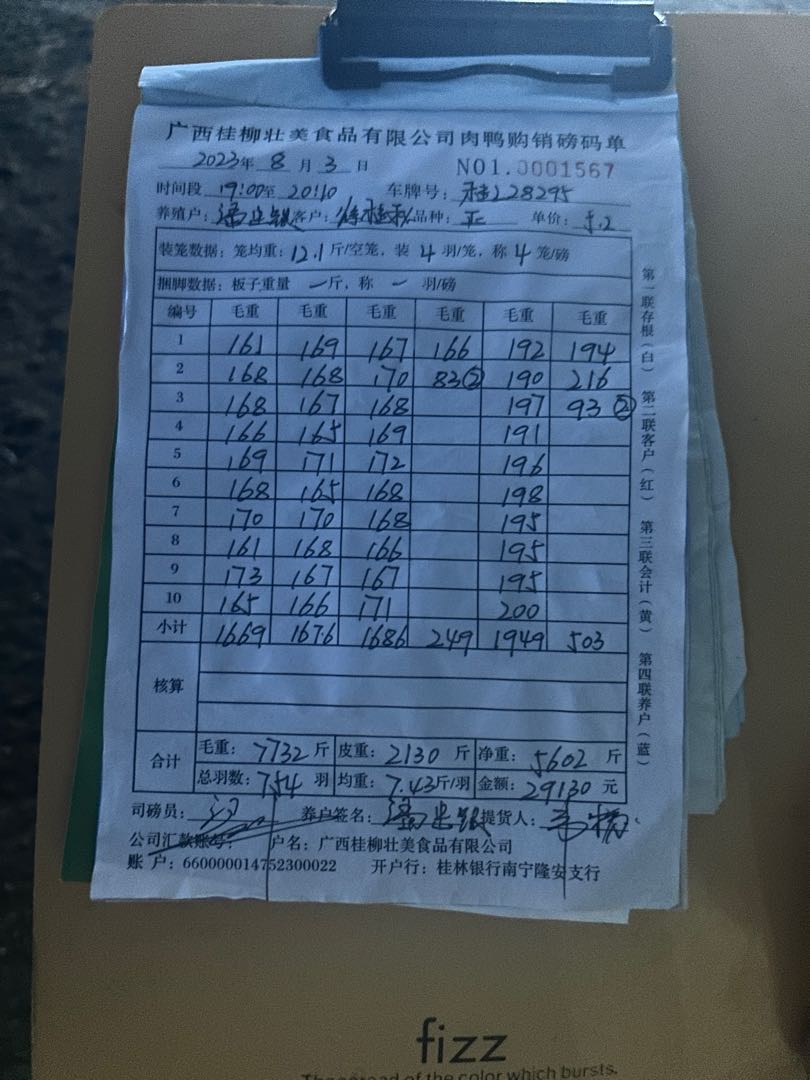 广西桂柳壮美食品有限公司肉鸭购销磅码单
2023年 8 月 3 日 NO1.0001567
时间段 19:00至 20:10 车牌号: 桂L28295
养殖户: 客户: 品种: 正 单价: 5.2
装笼数据: 笼均重: 12.1 斤/空笼, 装 4 羽/笼, 称 4 笼/磅
捆脚数据: 板子重量 一 斤, 称 一 羽/磅
编号 毛重 毛重 毛重 毛重 毛重 毛重
1 161 169 167 166 192 194
2 168 168 170 83② 190 216
3 168 167 168 197 93②
4 166 165 169 191
5 169 171 172 196
6 168 165 168 198
7 170 170 168 195
8 161 168 166 195
9 173 167 167 195
10 165 166 171 200
小计 1669 1676 1686 249 1949 503
核算
合计 毛重: 7732 斤 皮重: 2130 斤 净重: 5602 斤
总羽数: 754 羽 均重: 7.43斤/羽 金额: 29130 元
司磅员: 养户签名: 提货人:
公司汇款账号: 户名: 广西桂柳壮美食品有限公司
账 户: 660000014752300022 开户行: 桂林银行南宁隆安支行
第一联存根(白) 第二联客户(红) 第三联会计(黄) 第四联养户(蓝)
fizz
The spread of the color which bursts.